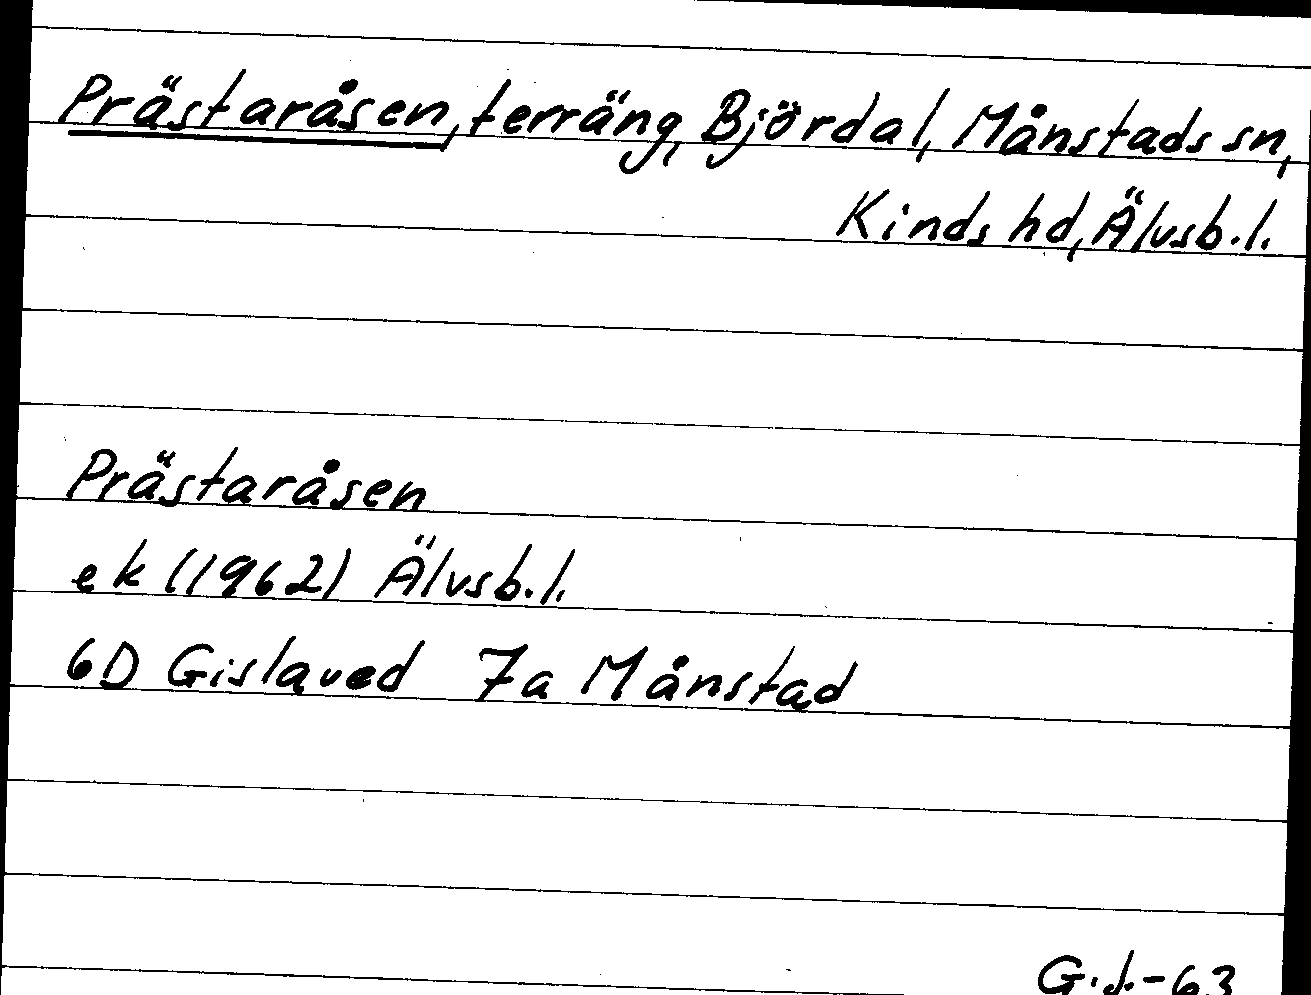 Prästaråsen, terräng, Björdal, Månstads sn,
Kinds hd, Älvsb. l.
Prästaråsen
ek (1962) Älvsb. l.
6D Gislaved 7a Månstad
G.J.-63